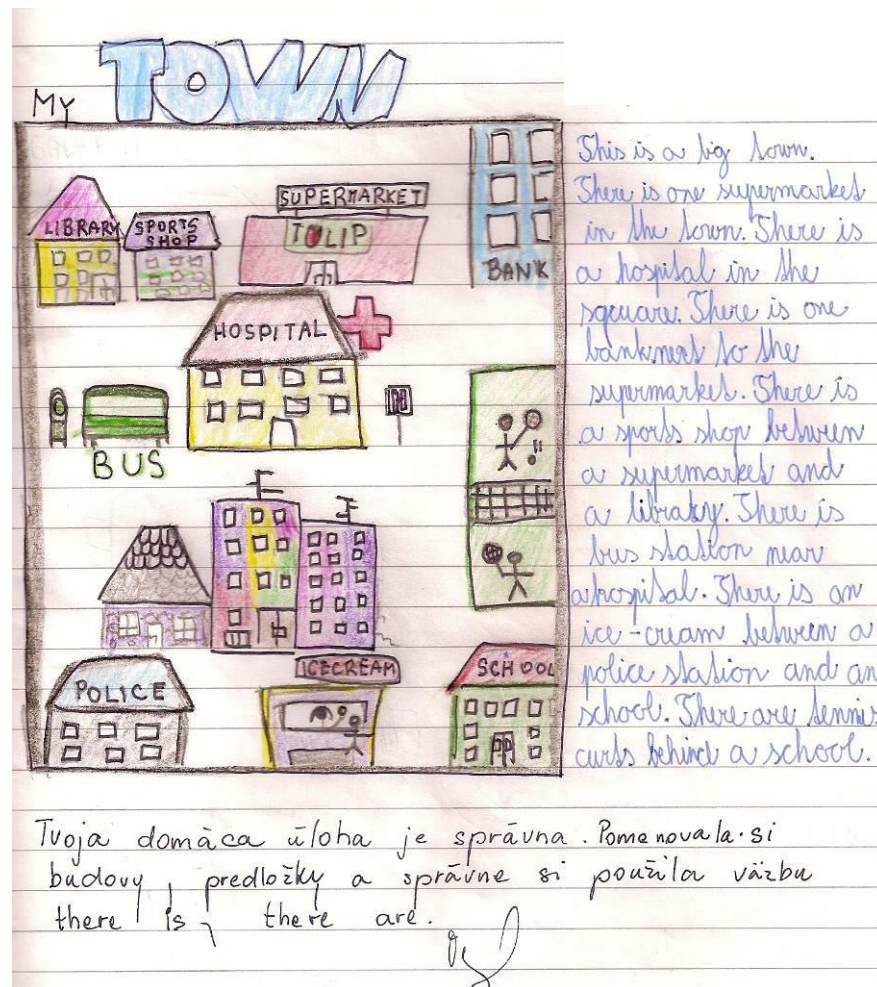 My TOWN
LIBRARY
SPORTS
SHOP
SUPERMARKET
TULIP
BANK
HOSPITAL
BUS
POLICE
ICECREAM
SCHOOL
This is a big town.
There is one supermarket
in the town. There is
a hospital in the
square. There is one
bank next to the
supermarket. There is
a sports shop between
a supermarket and
a library. There is
bus station near
a hospital. There is an
ice-cream between a
police station and an
school. There are tennis
curts behind a school.
Tvoja domáca úloha je správna. Pomenovala si
budovy, predložky a správne si použila väzbu
there is, there are.